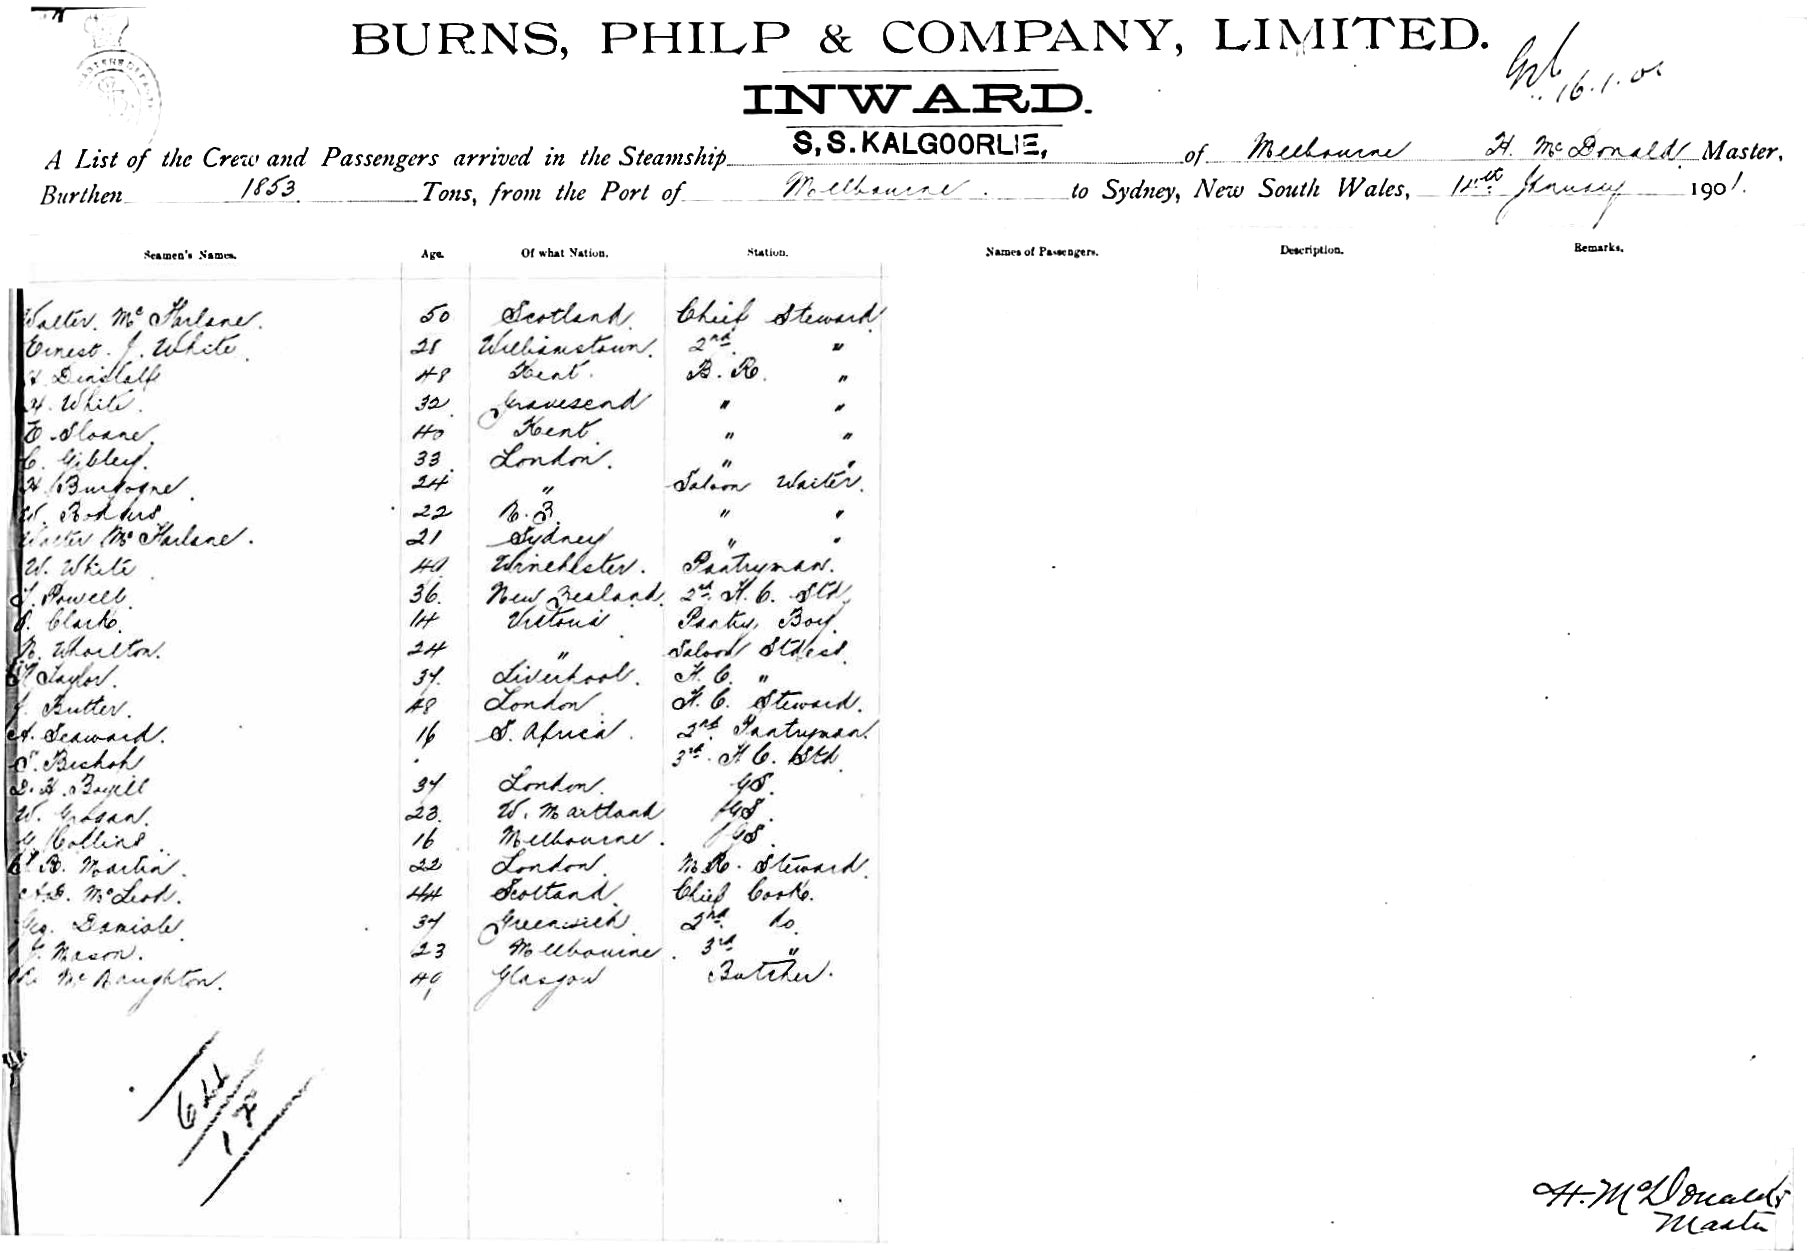 BURNS, PHILP & COMPANY, LIMITED.
16.1.01
INWARD.
A List of the Crew and Passengers arrived in the Steamship S,S.KALGOORLIE, of Melbourne H. McDonald Master,
Burthen 1853 Tons, from the Port of Melbourne. to Sydney, New South Wales, January 1901.
Seamen's Names. Age. Of what Nation. Station. Names of Passengers. Description. Remarks.
Walter. McFarlane. 50 Scotland. Chief Steward
Ernest. J. White. 28 Williamstown. 2nd "
48 Kent. B. R. "
H. White. 32 Gravesend " "
E. Sloane. 40 Kent " "
C. Gibley. 33. London. " "
H. Burgogne. 24 " Saloon Waiter.
W. Rodgers 22 N. Z. " "
Walter McFarlane. 21 Sydney " "
W. White 49. Winchester. Pantryman.
Powell 36. New Zealand. 2nd F. C. Std.
Clark. 14 Victoria Pantry Boy.
N. Whorlton. 24 " Saloon Stdess.
Taylor. 37. Liverpool. F. C. "
J. Butter. 48 London. F. C. Steward.
A. Seaward. 16 S. Africa. 2nd Pantryman.
S. Bishop 3rd F. C. Std.
D. H. 37 London. GS.
W. Grogan. 23. W. Maitland GS.
G. Collins. 16 Melbourne. GS.
R. Martin. 22 London. M.R. Steward.
McLeod. 44 Scotland. Chief Cook.
Geo. Daniels. 37 Greenwich 2nd do.
J. Mason. 23 Melbourne. 3rd "
McNaughton. 49 Glasgow Butcher.
H. McDonald
Master